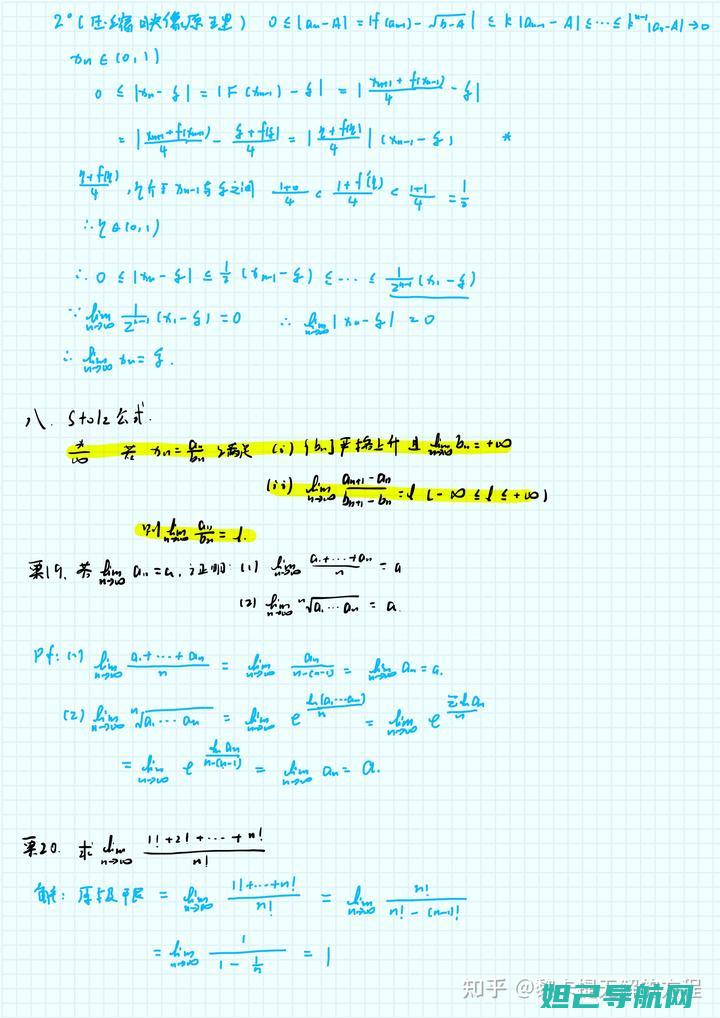 2° (压缩映像原理) 0 ≤ |an - A| = |f(an-1) - √b-A| ≤ k|an-1 - A| ≤ … ≤ k^(n-1)|a1 - A| → 0
xn ∈ (0, 1)
0 ≤ |xn - ξ| = |F(xn-1) - ξ| = |(xn-1 + f(xn-1))/4 - ξ|
= |(xn-1 + f(xn-1))/4 - (ξ + f(ξ))/4| = |(η + f(η))/4| (xn-1 - ξ) *
(η + f(η))/4, η介于xn-1与ξ之间 (1+0)/4 < (1 + f'(η))/4 < (1+1)/4 = 1/2
∴ η ∈ (0, 1)
∴ 0 ≤ |xn - ξ| ≤ 1/2 (xn-1 - ξ) ≤ … ≤ 1/2^(n-1) (x1 - ξ)
∵ lim n→∞ 1/2^(n-1) (x1 - ξ) = 0 ∴ lim n→∞ |xn - ξ| = 0
∴ lim n→∞ xn = ξ.
八. Stolz公式.
*/∞ 若 xn = an/bn 满足 (i) {bn}严格上升且 lim n→∞ bn = +∞
(ii) lim n→∞ (an+1 - an)/(bn+1 - bn) = l (-∞ ≤ l ≤ +∞)
则 lim n→∞ an/bn = l.
19. 若 lim n→∞ an = a, 证明: (1) lim n→∞ (a1 + … + an)/n = a
(2) lim n→∞ n√(a1 … an) = a.
Pf: (1) lim n→∞ (a1 + … + an)/n = lim n→∞ an/(n-(n-1)) = lim n→∞ an = a.
(2) lim n→∞ n√(a1 … an) = lim n→∞ e^(ln(a1…an)/n) = lim n→∞ e^(Σln an/n)
= lim n→∞ e^(ln an/(n-(n-1))) = lim n→∞ an = a.
20. 求 lim n→∞ (1! + 2! + … + n!)/n!
解: 原极限 = lim n→∞ (1! + … + n!)/n! = lim n→∞ n!/(n! - (n-1)!)
= lim n→∞ 1/(1 - 1/n) = 1
知乎
妲己导航网